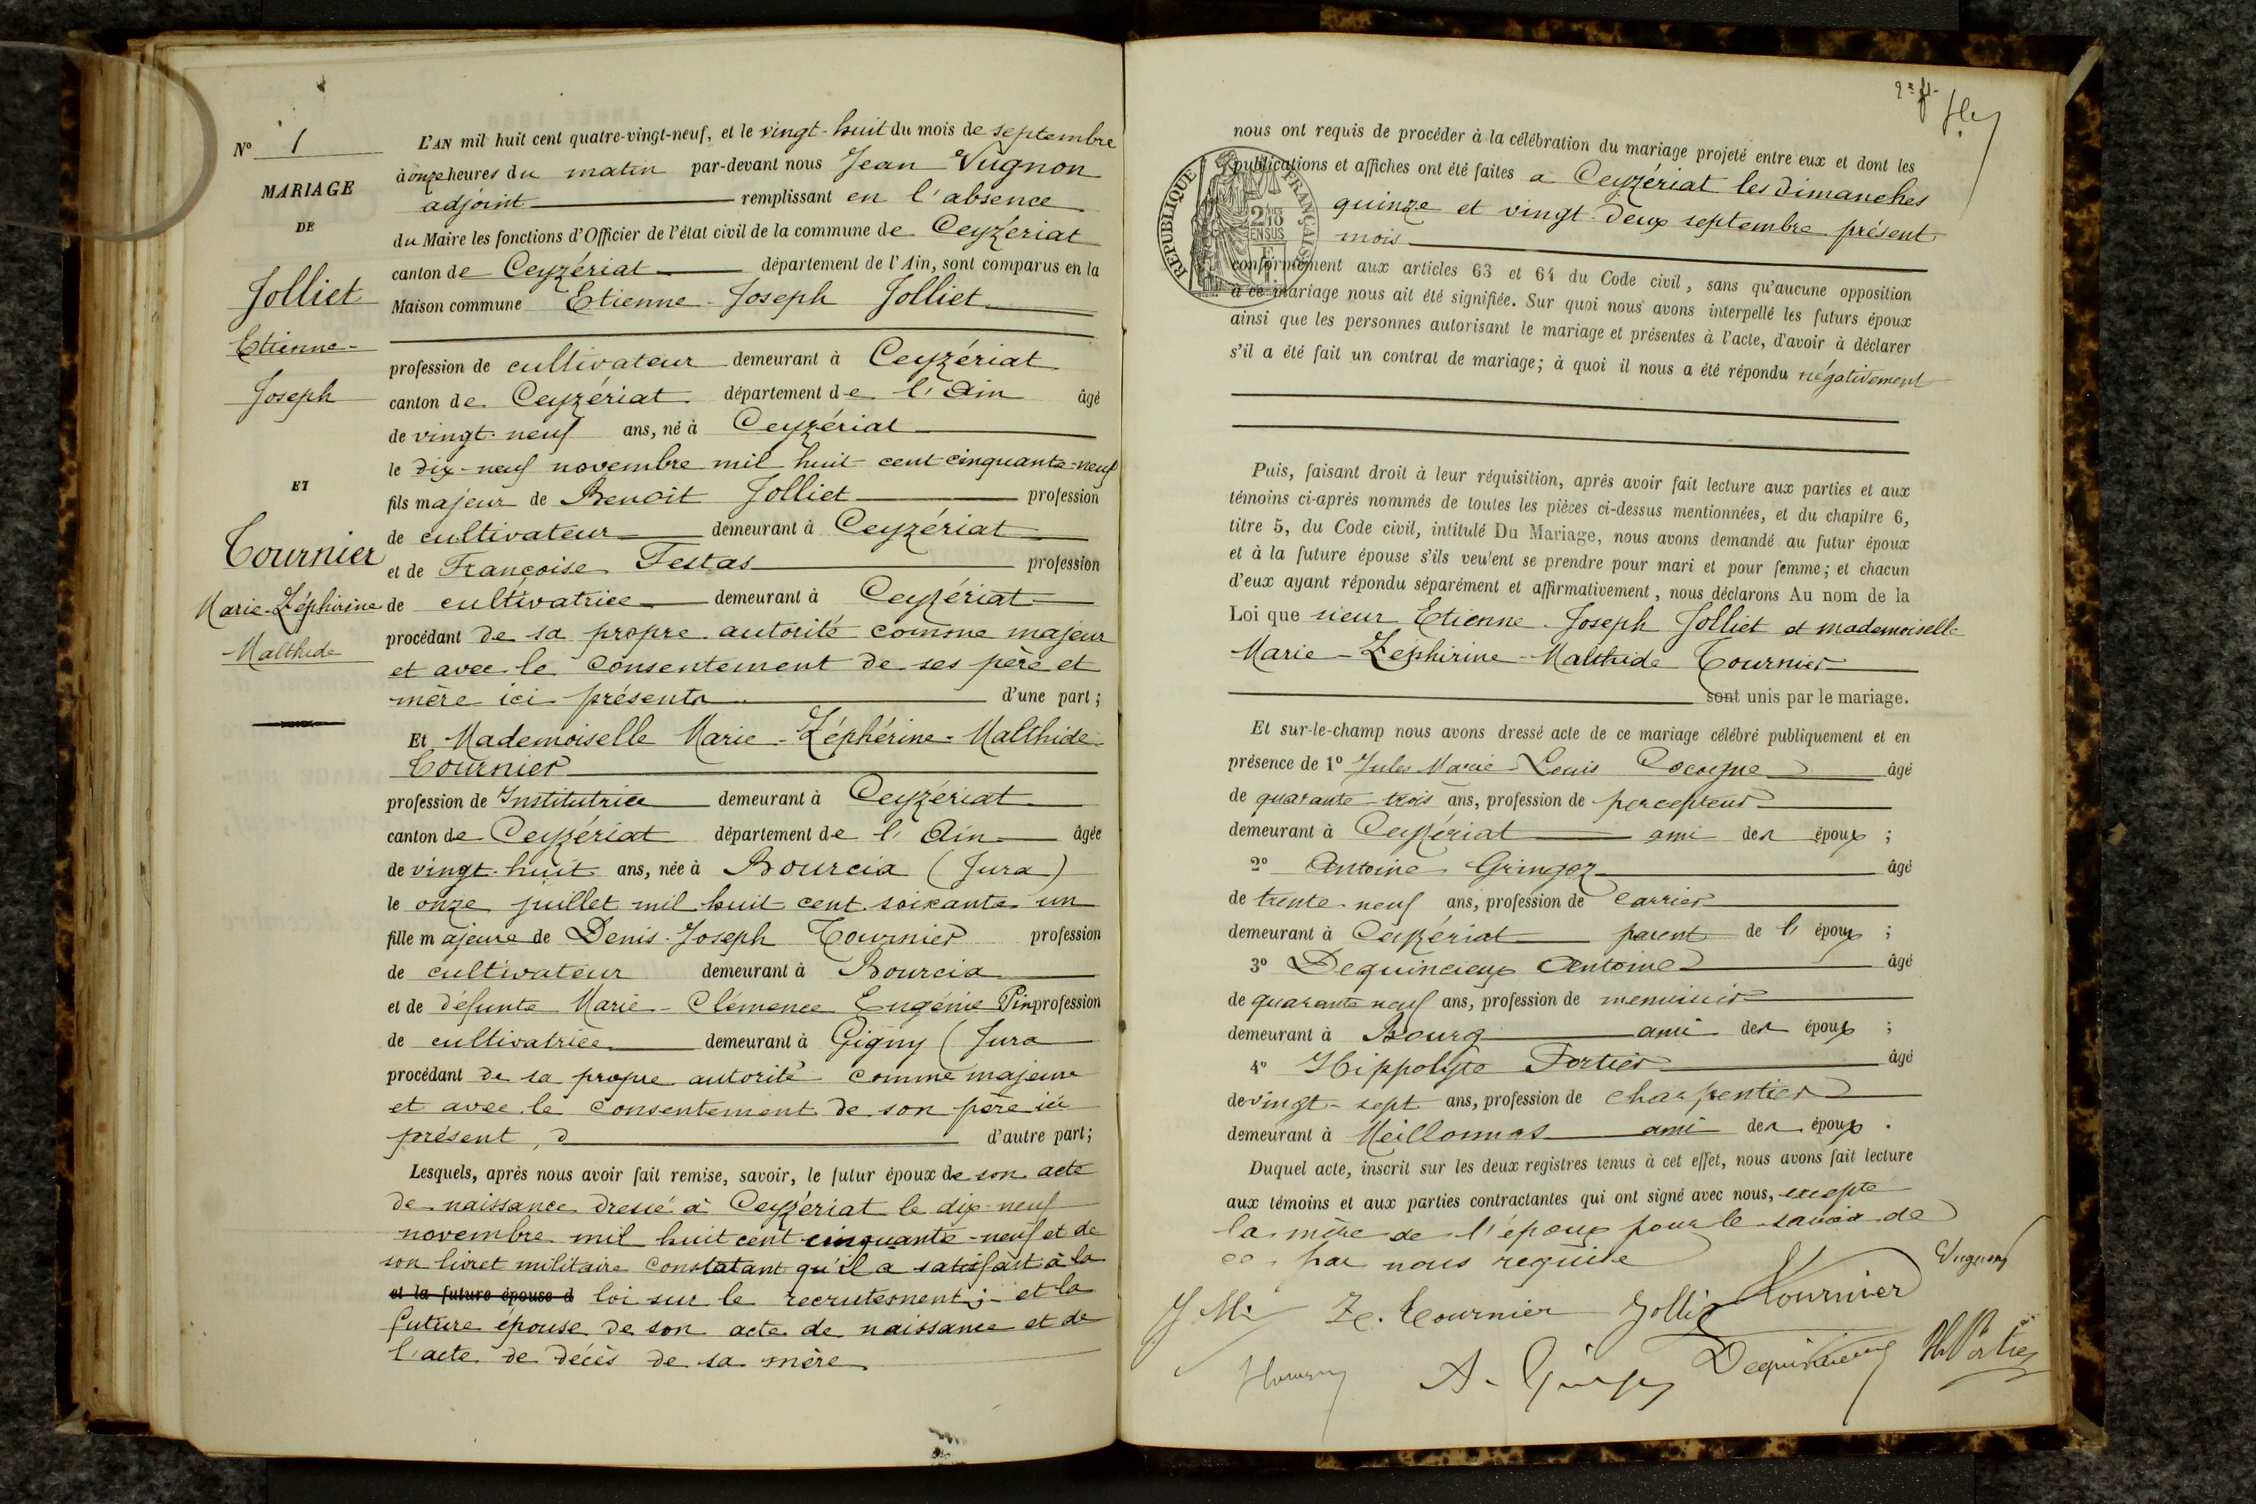 N° 1
MARIAGE
DE
Jolliet
Etienne-
Joseph
ET
Tournier
Marie-Zéphirine
Malthide
L'AN mil huit cent quatre-vingt-neuf, et le vingt-huit du mois de septembre
à onze heures du matin par-devant nous Jean Vugnon
adjoint remplissant en l'absence
du Maire les fonctions d'Officier de l'état civil de la commune de Ceyzériat
canton de Ceyzériat département de l'Ain, sont comparus en la
Maison commune Etienne-Joseph Jolliet
profession de cultivateur demeurant à Ceyzériat
canton de Ceyzériat département de l'Ain âgé
de vingt-neuf ans, né à Ceyzériat
le dix-neuf novembre mil huit cent cinquante-neuf
fils majeur de Benoit Jolliet profession
de cultivateur demeurant à Ceyzériat
et de Françoise Festas profession
de cultivatrice demeurant à Ceyzériat
procédant de sa propre autorité comme majeur
et avec le consentement de ses père et
mère ici présents d'une part;
Et Mademoiselle Marie-Zéphérine-Malthide
Tournier
profession de Institutrice demeurant à Ceyzériat
canton de Ceyzériat département de l'Ain âgée
de vingt-huit ans, née à Bourcia (Jura)
le onze juillet mil huit cent soixante un
fille majeure de Denis-Joseph Tournier profession
de cultivateur demeurant à Bourcia
et de défunte Marie-Clémence Eugénie Pin profession
de cultivatrice demeurant à Gigny (Jura
procédant de sa propre autorité comme majeure
et avec le consentement de son père ici
présent, d'autre part;
Lesquels, après nous avoir fait remise, savoir, le futur époux de son acte
de naissance dressé à Ceyzériat le dix-neuf
novembre mil huit cent cinquante-neuf et de
son livret militaire constatant qu'il a satisfait à la
et la future épouse d loi sur le recrutement; et la
future épouse de son acte de naissance et de
l'acte de décès de sa mère
nous ont requis de procéder à la célébration du mariage projeté entre eux et dont les
publications et affiches ont été faites a Ceyzériat les dimanches
quinze et vingt-deux septembre présent
mois
REPUBLIQUE FRANÇAISE
2/10 EN SUS
conformément aux articles 63 et 64 du Code civil, sans qu'aucune opposition
à ce mariage nous ait été signifiée. Sur quoi nous avons interpellé les futurs époux
ainsi que les personnes autorisant le mariage et présentes à l'acte, d'avoir à déclarer
s'il a été fait un contrat de mariage; à quoi il nous a été répondu négativement
Puis, faisant droit à leur réquisition, après avoir fait lecture aux parties et aux
témoins ci-après nommés de toutes les pièces ci-dessus mentionnées, et du chapitre 6,
titre 5, du Code civil, intitulé Du Mariage, nous avons demandé au futur époux
et à la future épouse s'ils veulent se prendre pour mari et pour femme; et chacun
d'eux ayant répondu séparément et affirmativement, nous déclarons Au nom de la
Loi que sieur Etienne-Joseph Jolliet et mademoiselle
Marie-Zephirine-Malthide Tournier
sont unis par le mariage.
Et sur-le-champ nous avons dressé acte de ce mariage célébré publiquement et en
présence de 1° Jules Marie Louis âgé
de quarante-trois ans, profession de percepteur
demeurant à Ceyzériat ami des époux;
2° Antoine Gringoz âgé
de trente-neuf ans, profession de carrier
demeurant à Ceyzériat parent de l'époux;
3° Dequincieux Antoine âgé
de quarante neuf ans, profession de menuisier
demeurant à Bourg ami des époux;
4° Hippolyte Fortier âgé
de vingt-sept ans, profession de charpentier
demeurant à Meillonnas ami des époux.
Duquel acte, inscrit sur les deux registres tenus à cet effet, nous avons fait lecture
aux témoins et aux parties contractantes qui ont signé avec nous, excepté
la mère de l'époux pour le savoir de
ce par nous requise
Vugnon
Z. Tournier Jolliet Tournier
Dequincieux